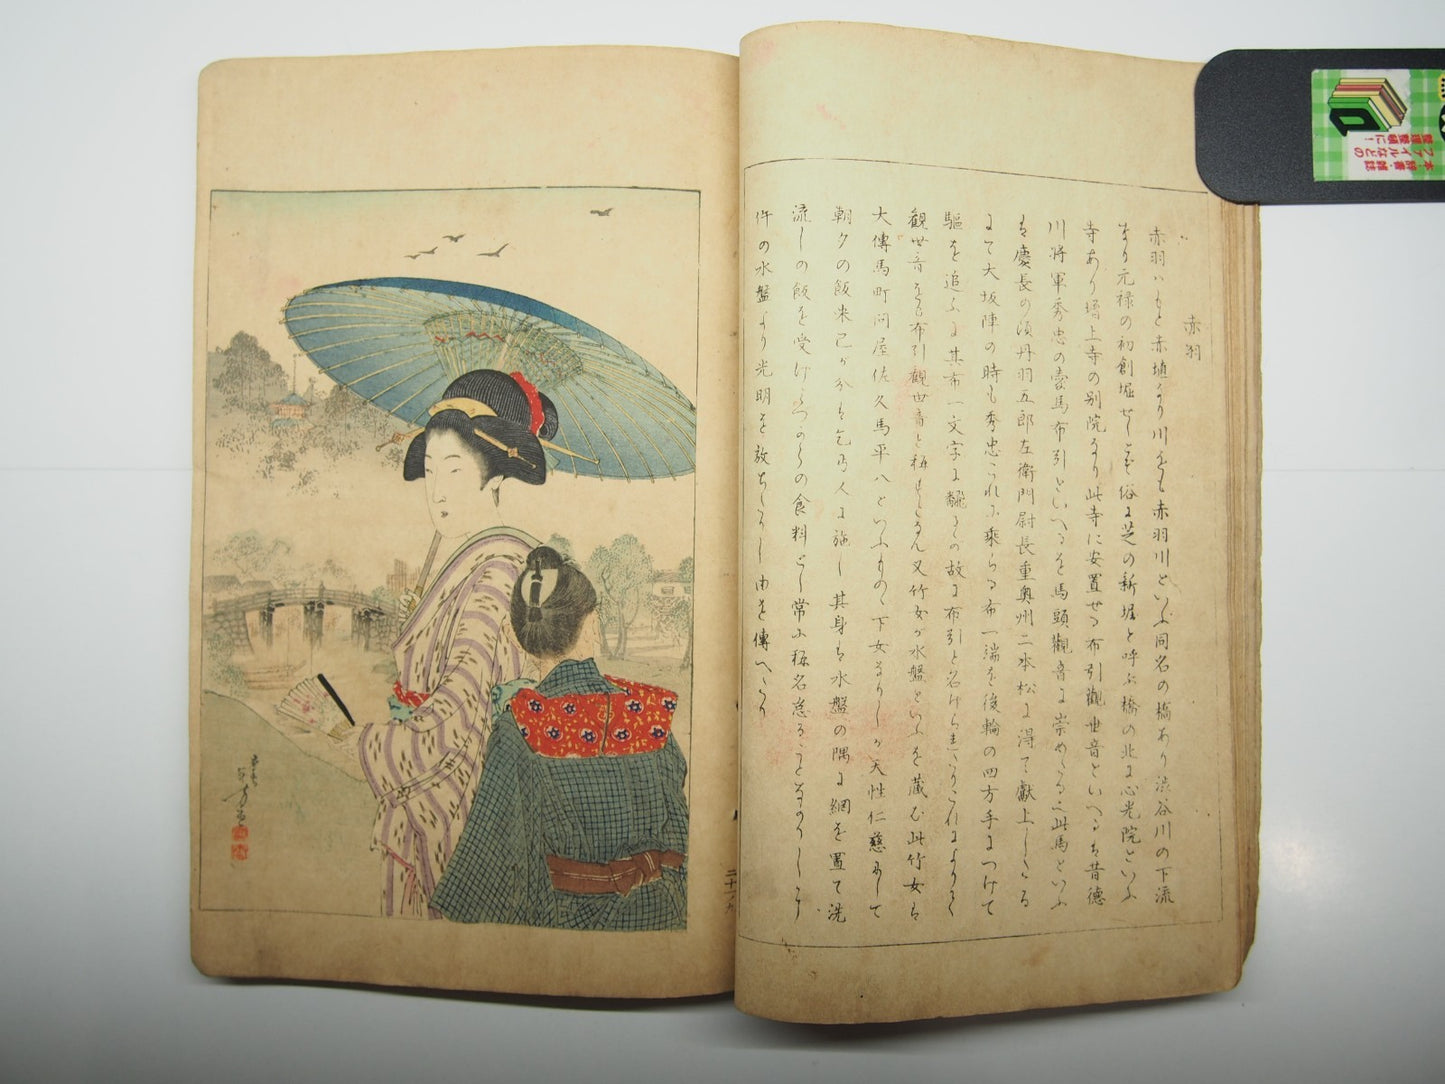 赤羽
赤羽ハもと赤埴なり川をも赤羽川といふ同名の橋あり渋谷川の下流
なり元禄の初創堀せしこと俗に芝の新堀と呼ぶ橋の北に心光院といふ
寺あり増上寺の別院なり此寺に安置せる布引觀世音といへるは昔徳
川将軍秀忠の愛馬布引といへるを馬頭觀音に崇めたる之此馬といふ
は慶長の頃丹羽五郎左衛門尉長重奥州二本松に得て獻上したる
にて大坂陣の時も秀忠これに乗らる布一端を後輪の四方手につけて
驅を追ふに其布一文字に飜るの故に布引と名けられたりこれによりて
觀世音をも布引觀世音と称すとなん又竹女が水盤といふを蔵む此竹女は
大傳馬町問屋佐久馬平八といふものゝ下女なりしが天性仁慈にして
朝夕の飯米己が分を乞丐人に施し其身は水盤の隅に網を置て洗
流しの飯を受けもつのらの食料とし常に称名怠ることなかりしより
件の水盤より光明を放ちたりし由を傳へたり
二十一ノ九
本・辞書・雑誌
ファイルなどの
整理整頓に!